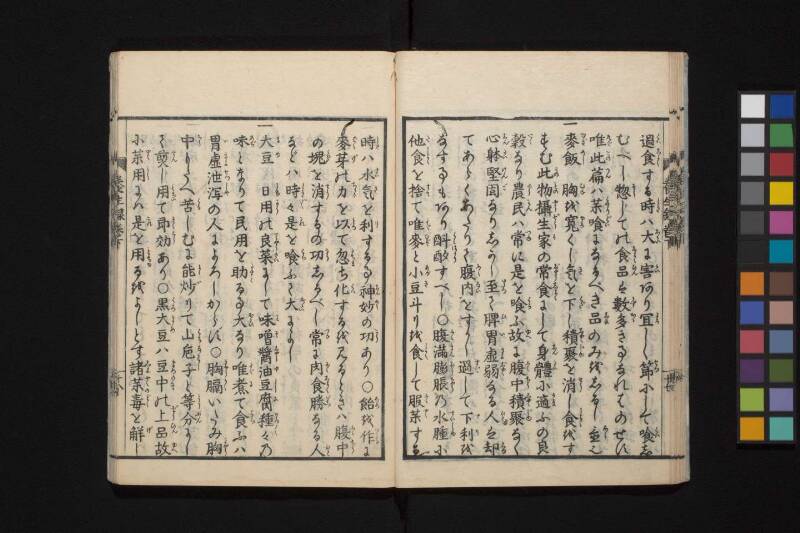 過食する時ハ大に害あり宜しく節にして喰
むべし惣しての食品も数多きるれはのせに
唯此篇ハ菜喰になるべき品のみをしるし
一麥飯 胸を寛くし気を下し積聚を消し食をす
すむ此物攝生家の常食にして身體に適ふの良
穀なり農民ハ常に是を喰ふ故に腹中積聚なく
心躰堅固なりしかし至て脾胃虚弱なる人ハ却
てあしくあたりて腹内をすかし過して下利を
なすもあり斟酌すべし○腹満膨脹乃水腫に
他食を捨て唯麥と小豆斗りを食して服薬する
時ハ水気を利する神妙の功あり○飴を作に
麥芽の力を以て忽ち化するを見るときハ腹中
の塊を消するの功あるべし常に肉食勝なる人
などハ時々是を喰ふて大によし
一大豆 日用の良菜にして味噌醬油豆腐種々乃
味となりて民用を助る事大なり唯煮て食ふハ
胃虚泄瀉の人によろしからに○胸膈いたみ胸
中もたへ苦しむに能炒りて山梔子と等分にし
て煎し用て即効あり○黒大豆ハ豆中の上品故
に薬用にハ是を用るをよしとす諸薬毒を解し